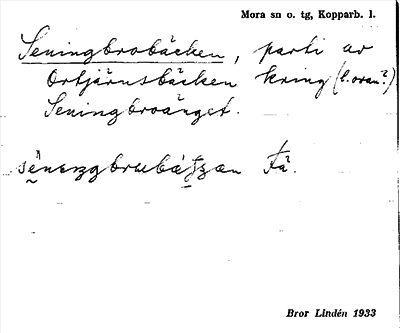 Mora sn o. tg, Kopparb. l.
Seningbrobäcken, parti av
Ortjärnsbäcken kring (l. ovan?)
Seningbroänget.
Få.
Bror Lindén 1933